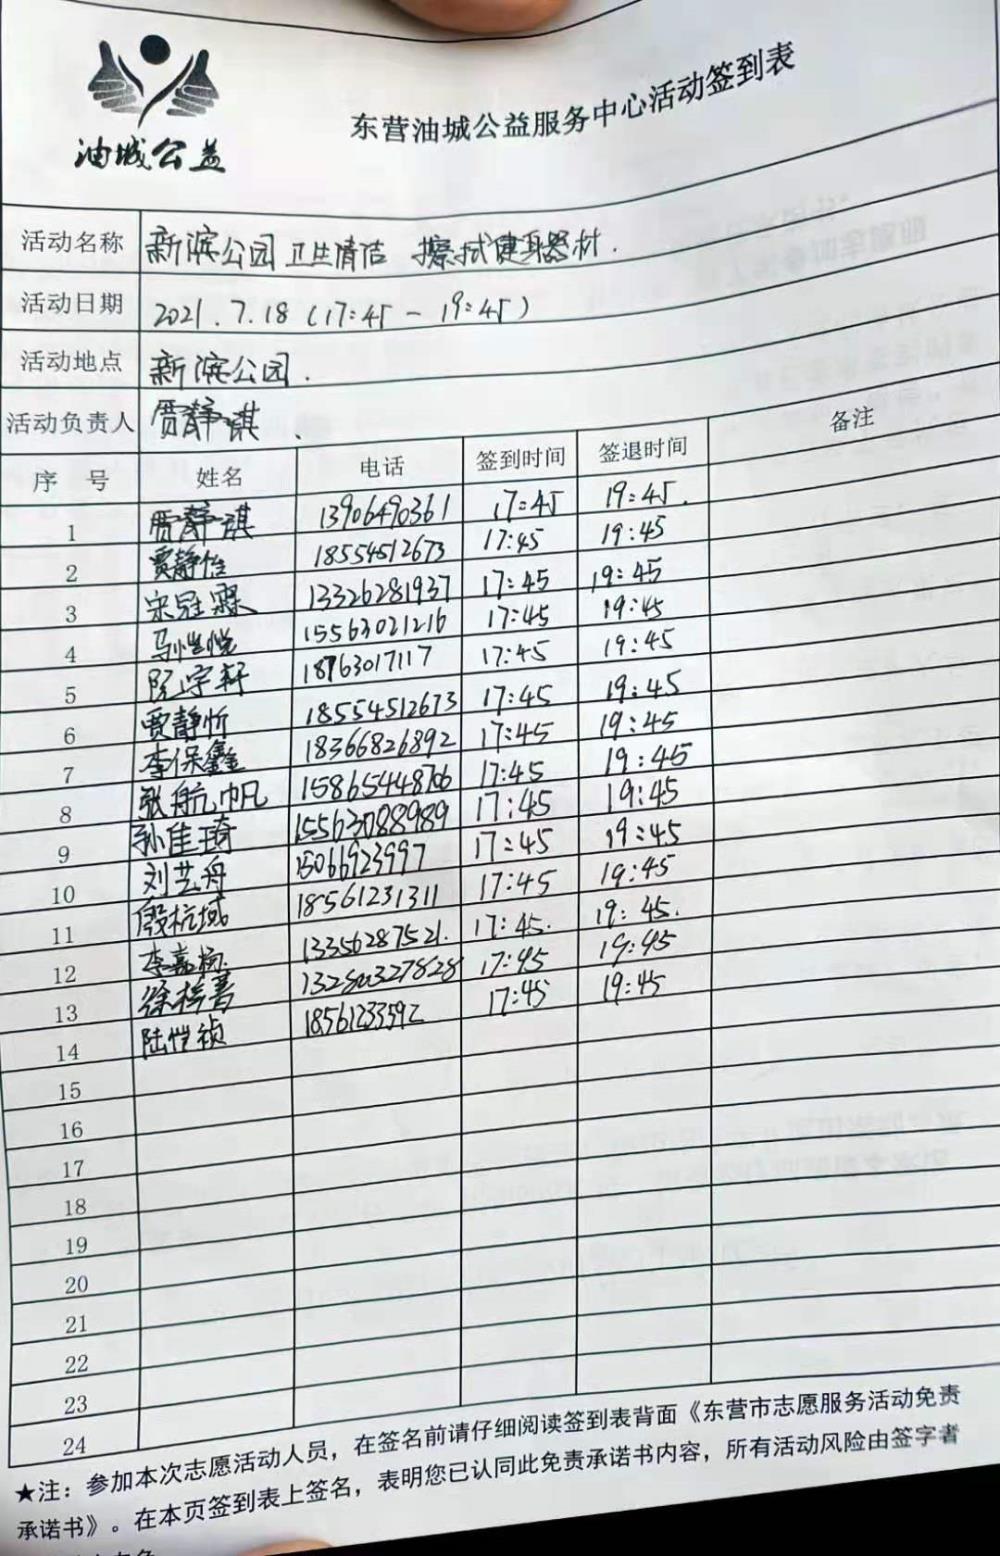 油城公益
东营油城公益服务中心活动签到表
活动名称 新滨公园卫生清洁 擦拭健身器材.
活动日期 2021.7.18(17:45-19:45)
活动地点 新滨公园.
活动负责人 贾静淇、
序号 姓名 电话 签到时间 签退时间 备注
1 贾静淇 13906490361 17:45 19:45.
2 贾静怡 18554512673 17:45 19:45
3 宋冠霖 13326281937 17:45 19:45
4 马恺悦 15563021216 17:45 19:45
5 阮宇轩 18763017117 17:45 19:45
6 贾静忻 18554512673 17:45 19:45
7 李保鑫 18366826892 17:45 19:45
8 张航帆 15865444876 17:45 19:45
9 孙佳琦 15563088989 17:45 19:45
10 刘艺舟 15066923997 17:45 19:45
11 殷杭域 18561231311 17:45 19:45
12 李嘉杨 13356287521. 17:45. 19:45.
13 徐梓晋 13280327828 17:45 19:45
14 陆恺祯 18561233592 17:45 19:45
15
16
17
18
19
20
21
22
23
24
★注：参加本次志愿活动人员，在签名前请仔细阅读签到表背面《东营市志愿服务活动免责
承诺书》。在本页签到表上签名，表明您已认同此免责承诺书内容，所有活动风险由签字者